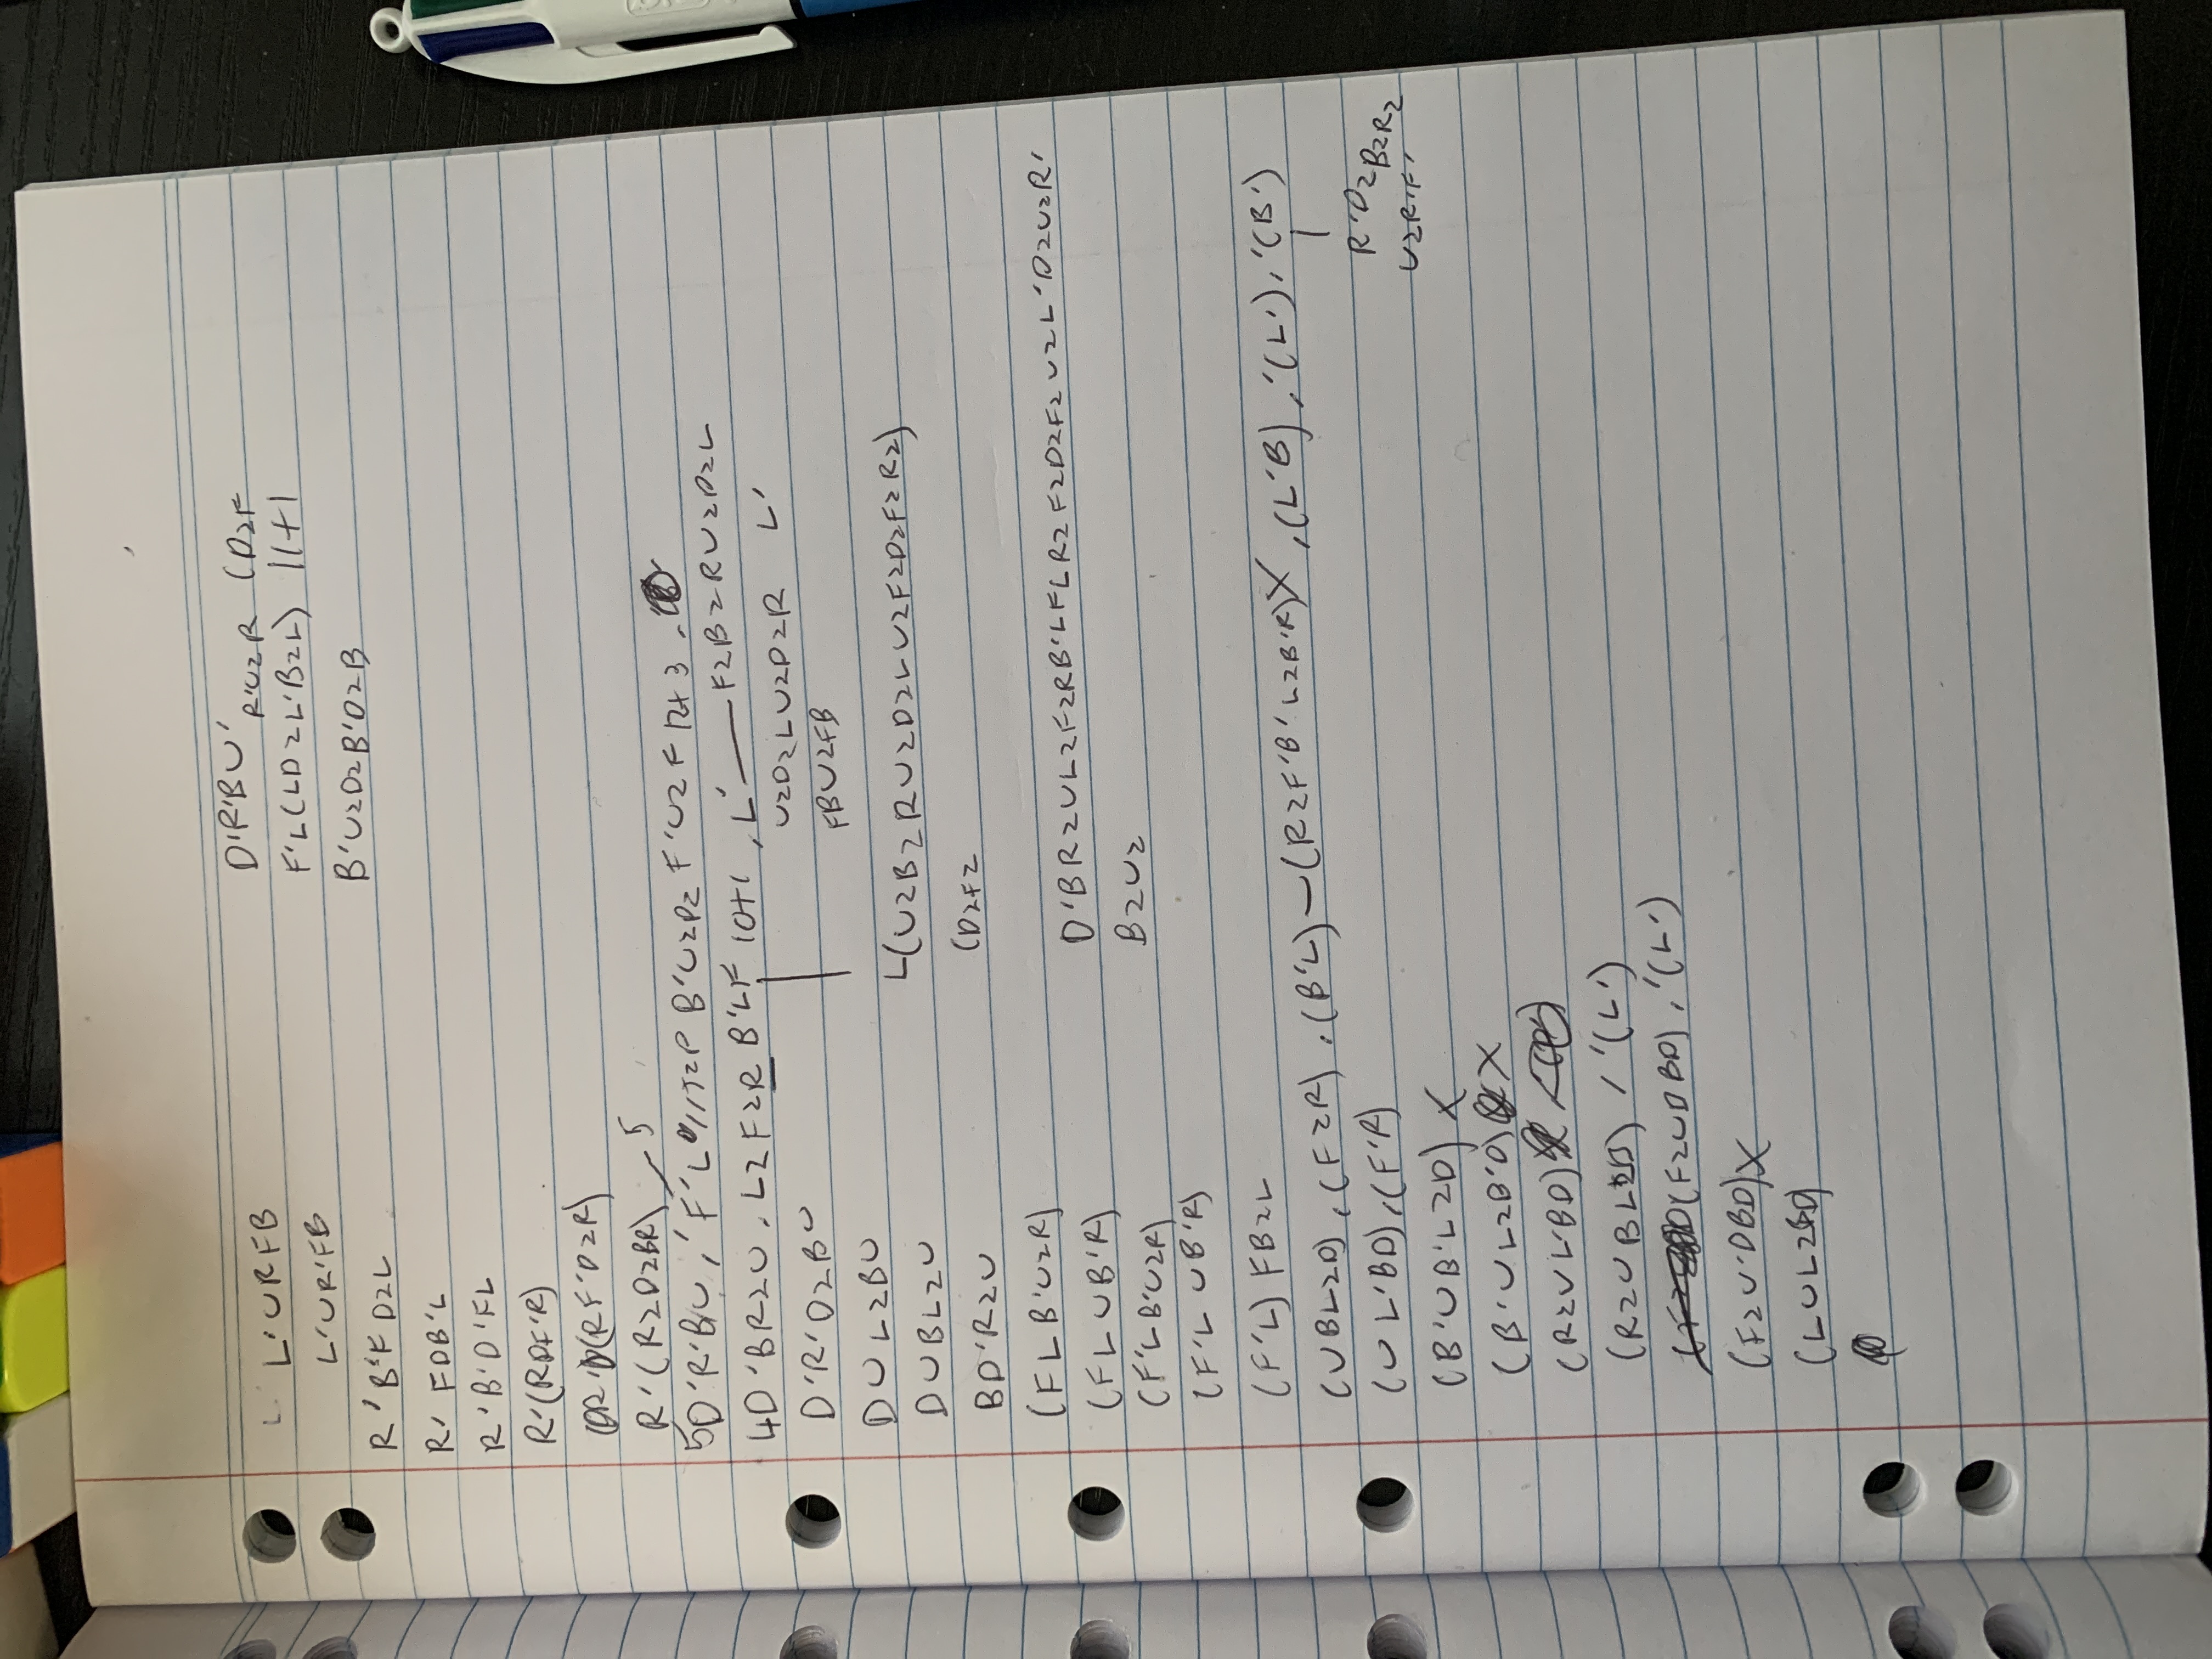 L'URFB
L'UR'FB
R'B'F D2L
R' FDB'L
R'B'D'FL
R'(RDF'R)
(RF'D2R)
R'(R2D2BR) 5
5D'R'BU,' F'L B'U2D2 F'U2F 12+3
4D'BR2U, L2F2R B'LF 10+1, L' F2B2RU2D2L
U2D2LU2D2R L'
FBU2FB
D'R'D2BU
DUL2BU
DUBL2U
BD'R2U
(FLB'U2R)
(FLUB'R)
(F'LB'U2R)
(F'LUB'R)
(F'L) FB2L
(UBL2D), (F2R), (B'L) – (R2F'B'L2B'R) X, (L'B), '(L'), '(B')
(UL'BD), (F'R)
(B'UB'L2D) X
(B'UL2B'D) X
(R2UL'BD)
(R2UBL2D) , '(L')
(F2UDBD), '(L')
(F2U'DBD) X
(LUL2BD)
D'R'BU' R'U2R (D2F
F'L(LD2L'B2L) 11+1
B'U2D2B'D2B
L(U2B2RU2D2LU2F2D2F2R2)
(D2F2
D'BR2UL2F2RB'LFLR2F2D2F2U2L'D2U2R'
B2U2
R'D2B2R2
U2R'F'